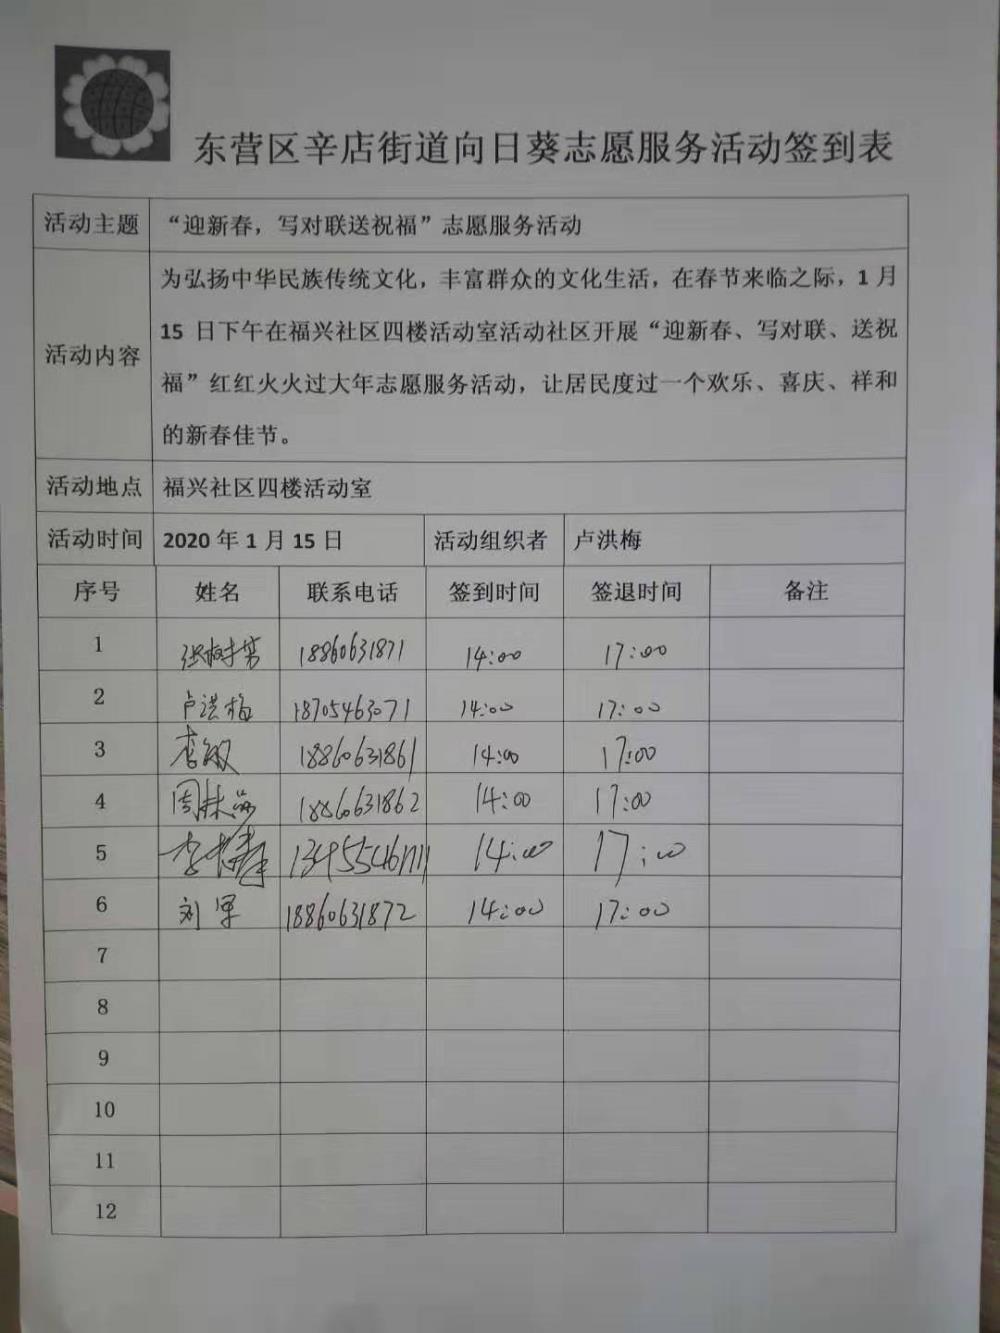 东营区辛店街道向日葵志愿服务活动签到表
活动主题 “迎新春，写对联送祝福”志愿服务活动
活动内容
为弘扬中华民族传统文化，丰富群众的文化生活，在春节来临之际，1月
15 日下午在福兴社区四楼活动室活动社区开展“迎新春、写对联、送祝
福”红红火火过大年志愿服务活动，让居民度过一个欢乐、喜庆、祥和
的新春佳节。
活动地点 福兴社区四楼活动室
活动时间 2020 年 1 月 15 日 活动组织者 卢洪梅
序号 姓名 联系电话 签到时间 签退时间 备注
1 18860631871 14:00 17:00
2 卢洪梅 18705463071 14:00 17:00
3 李敏 18860631861 14:00 17:00
4 18860631862 14:00 17:00
5 14:00 17:00
6 刘军 18860631872 14:00 17:00
7
8
9
10
11
12